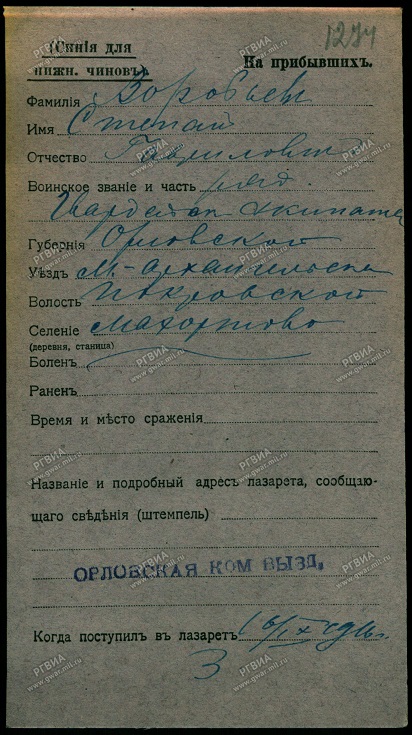 (Синія для
нижн. чиновъ).
На прибывшихъ.
1274
Фамилія Воробьев
Имя Степан
Отчество Гаврилович
Воинское званіе и часть ряд.
Гвардейск экипажа
Губернія Орловской
Уѣздъ М.-Архангельска
Волость Покровской
Селеніе Махортово
(деревня, станица)
Боленъ
Раненъ
Время и мѣсто сраженія
Названіе и подробный адресъ лазарета, сообщаю-
щаго свѣдѣнія (штемпель)
ОРЛОВСКАЯ КОМ ВЫЗД.
Когда поступилъ въ лазаретъ
3
РГВИА
www.gwar.mil.ru